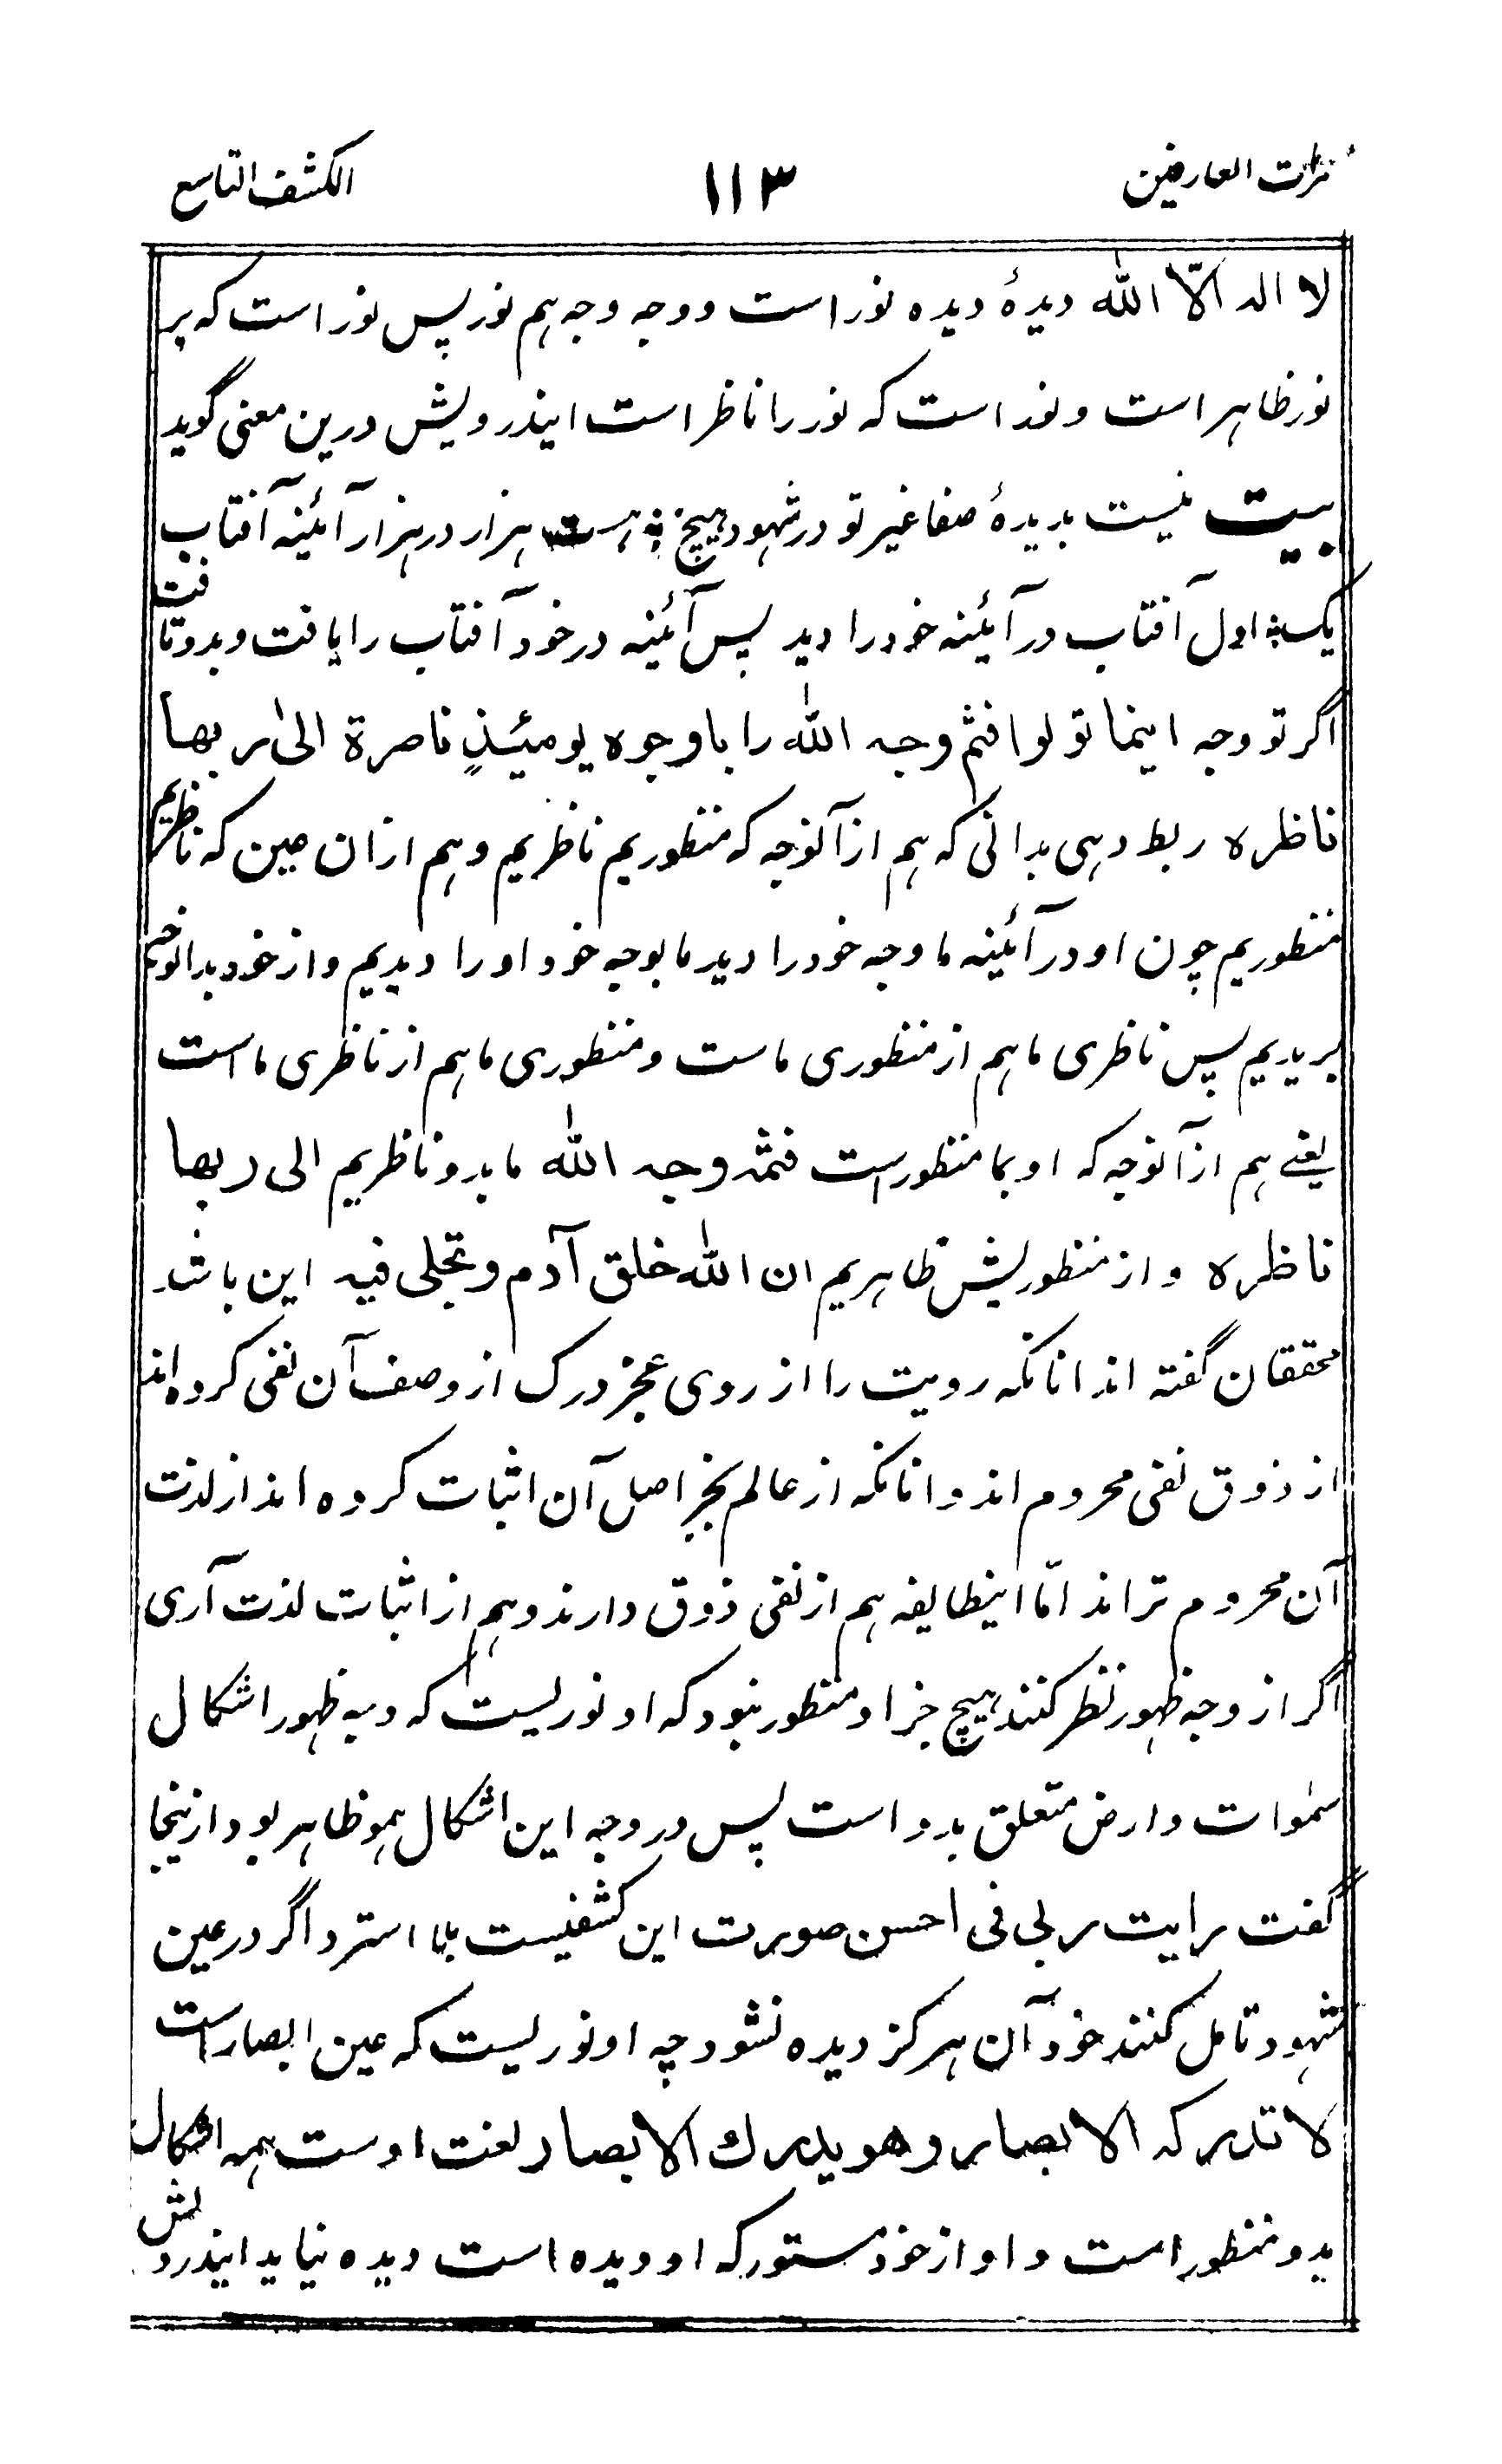 ثمرات العارفین ١١٣ الکشف التاسع
لا اله الّا الله دیدهٔ دیده نور است و وجه وجه هم نور پس نور است که بر
نور ظاهر است و نور است که نور را ناظر است ایندرویش درین معنی گوید
بیت نیست بدیدهٔ صفا غیر تو در شهود هیچ ؛ هست هزار در هزار آئینه آفتاب
یک ؛ اول آفتاب در آئینه خود را دید پس آئینه در خود آفتاب را یافت و بدو تافت
اگر تو وجه اینما تولوا فثم وجه الله را با وجوه یومئذٍ ناصرة الیٰ ربها
ناظره ربط دهی بدانی که هم از آنوجه که منظوریم ناظریم و هم ازان عین که ناظریم
منظوریم چون او در آئینه ما وجه خود را دید ما بوجه خود او را دیدیم و از خود بدانوجه
بریدیم پس ناظری ما هم از منظوری ماست و منظوری ما هم از ناظری ما است
یعنے هم از آنوجه که او بما منظور است فثمه وجه الله ما بدو ناظریم الی ربها
ناظره و از منظوریش ظاهریم ان الله خلق آدم و تجلی فیه این باشد
محققان گفته اند انانکه رویت را از روی عجز درک از وصف آن نفی کرده اند
از ذوق نفی محروم اند و انانکه از عالم بخبر اصل آن اثبات کرده اند از لذت
آن محروم تر اند امّا اینطایفه هم از نفی ذوق دارند و هم از اثبات لذت آری
اگر از وجه ظهور نظر کنند هیچ جز او منظور نبود که او نوریست که وجه ظهور اشکال
سمٰوات و ارض متعلق بدو است پس در وجه این اشکال همو ظاهر بود ازینجا
گفت رایت ربی فی احسن صورت این کشفیست بلا استر و اگر در عین
شهود تامل کنند خود آن هرگز دیده نشود چه او نوریست که عین ابصار است
لا تدرکه الابصار و هو یدرك الابصار نعت اوست همه اشکال
بدو منظور است و او از خود مستور که او دیده است دیده نیاید ایندرویش